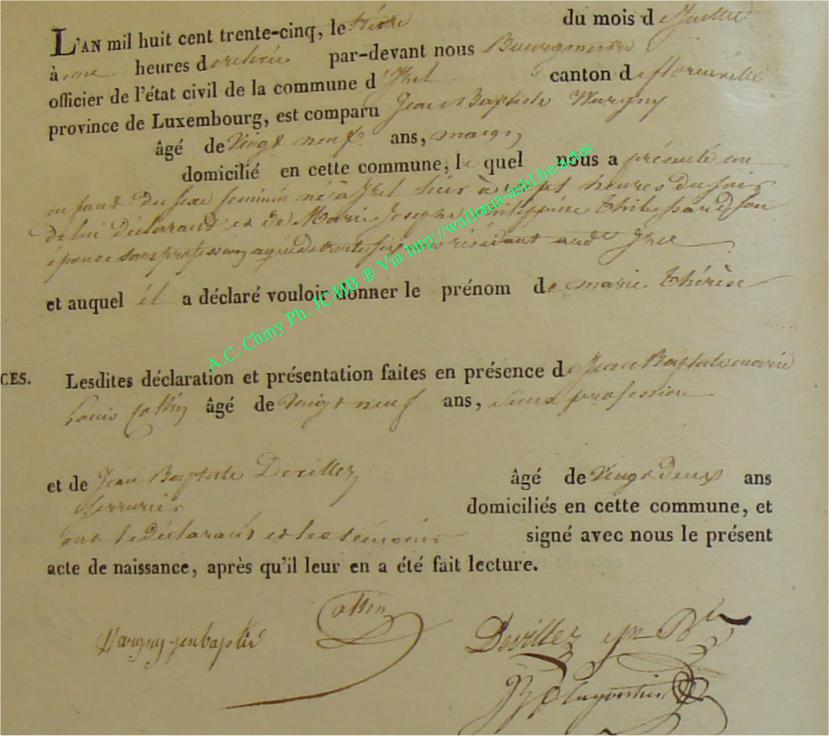 L'AN mil huit cent trente-cinq, le treize du mois de Juillet
à onze heures d par-devant nous Bourgmestre
officier de l'état civil de la commune d'Izel canton de florenville
province de Luxembourg, est comparu Jean Baptiste Wargny
âgé de vingt neuf ans,
domicilié en cette commune, le quel nous a présenté un
enfant du sexe feminin né à Izel hier à sept heures du soir
de lui déclarant et de Marie Josephe son
épouse sans profession agée de trente résidant Izel
et auquel il a déclaré vouloir donner le prénom de marie thérèse
A.C. Chiny Ph. JCMB ® Via http://wallonia-asbl.be/actes
CES. Lesdites déclaration et présentation faites en présence de Jean Baptiste
Louis Collin âgé de vingt neuf ans, sans profession
et de Jean Baptiste Devillez âgé de vingt deux ans
serrurier domiciliés en cette commune, et
ont le déclarant et les témoins signé avec nous le présent
acte de naissance, après qu'il leur en a été fait lecture.
Collin
Wargny jean baptiste Devillez